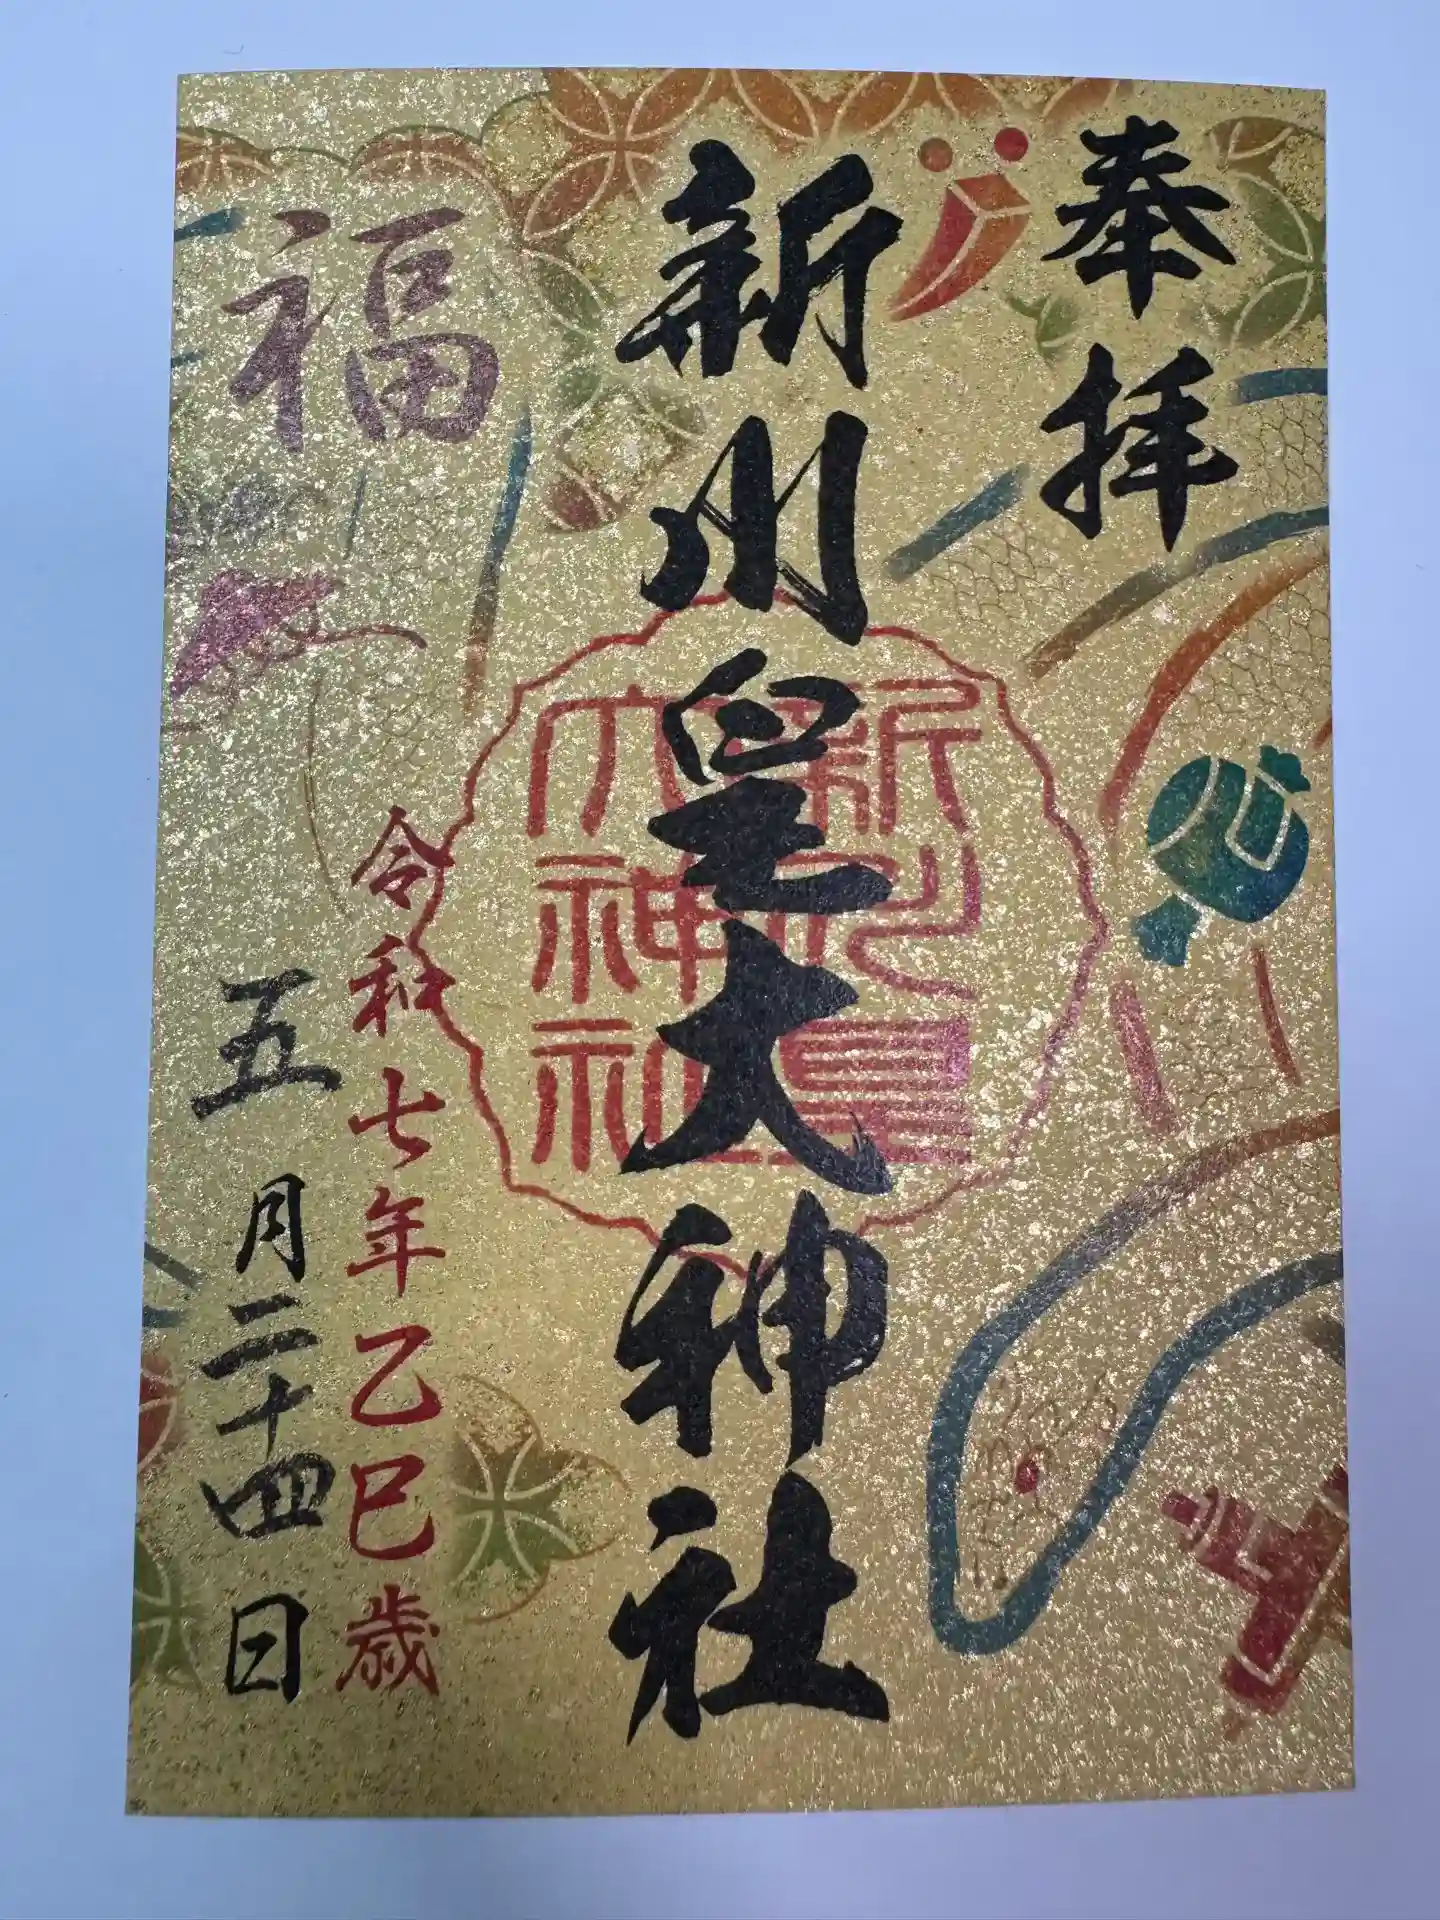 奉拝
新川皇大神社
新川皇大神社
福
令和七年乙巳歳
五月二十四日